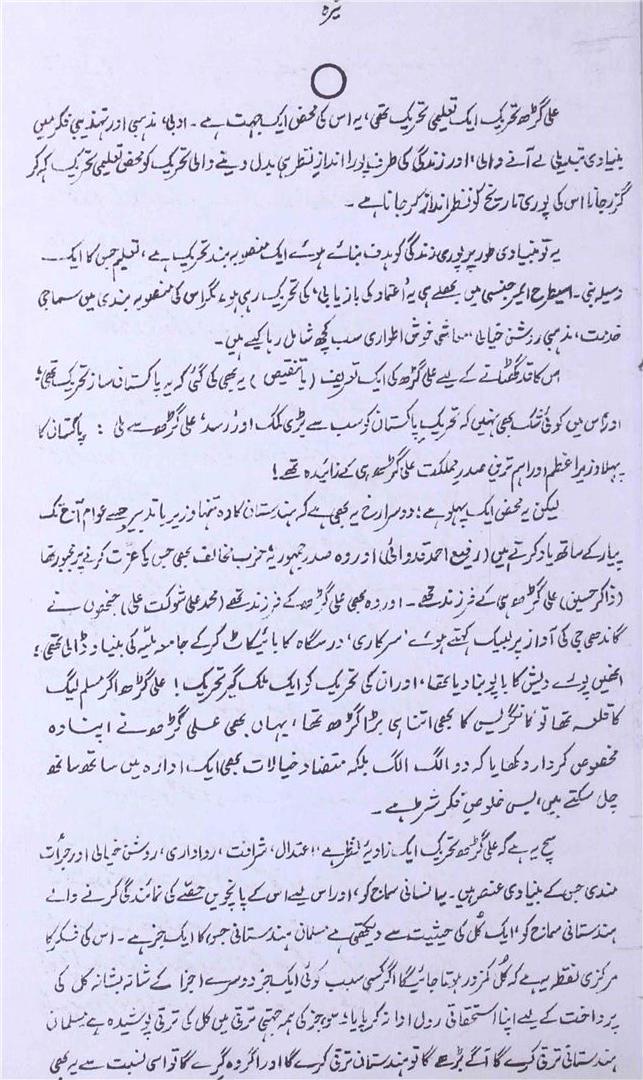 علی گڑھ تحریک ایک تعلیمی تحریک تھی، یہ اس کی محض ایک جہت ہے۔ ادبی، مذہبی اور تہذیبی فکر میں
بنیادی تبدیلی لے آنے والی اور زندگی کی طرف پورا اندازِ نظر ہی بدل دینے والی تحریک کو محض تعلیمی تحریک کہہ کر
گزر جانا اس کی پوری تاریخ کو نظر انداز کر جانا ہے۔
یہ تو بنیادی طور پر پوری زندگی کو ہدف بنائے ہوئے ایک منصوبہ بند تحریک ہے، تعلیم جس کا ایک
وسیلہ بنی۔ اسی طرح ایمرجنسی میں بھلے ہی یہ 'اعتماد کی بازیابی' کی تحریک رہی ہو، مگر اس کی منصوبہ بندی میں سماجی
خدمت، مذہبی روشن خیالی، معاشی خوش اطواری سب کچھ شامل رہا کیے ہیں۔
اس کا قد گھٹانے کے لیے علی گڑھ کی ایک تعریف (یا تنقیص) یہ بھی کی گئی کہ یہ پاکستان ساز تحریک تھی؛
اور اس میں کوئی شک بھی نہیں کہ تحریکِ پاکستان کو سب سے بڑی کمک اور 'رسد' علی گڑھ سے ملی : پاکستان کا
پہلا وزیر اعظم اور اہم ترین صدرِ مملکت علی گڑھ ہی کے زائیدہ تھے!
لیکن یہ محض ایک پہلو ہے؛ دوسرا رخ یہ بھی ہے کہ ہندستان کا وہ تنہا وزیر باتدبیر جسے عوام آج تک
پیار کے ساتھ یاد کرتے ہیں (رفیع احمد قدوائی) اور وہ صدر جمہوریہ حزب مخالف بھی جس کی عزت کرنے پر مجبور تھا
(ذاکر حسین) علی گڑھ ہی کے فرزند تھے۔ اور وہ بھی علی گڑھ کے فرزند تھے (محمد علی شوکت علی) جنھوں نے
گاندھی جی کی آواز پر لبیک کہتے ہوئے 'سرکاری' درسگاہ کا بائیکاٹ کرکے جامعہ ملیہ کی بنیاد ڈالی تھی؛
انھیں پورے دیش کا باپو بنا دیا تھا، اور ان کی تحریک کو ایک ملک گیر تحریک! علی گڑھ اگر مسلم لیگ
کا قلعہ تھا تو کانگریس کا بھی اتنا ہی بڑا گڑھ تھا، یہاں بھی علی گڑھ نے اپنا وہ
مخصوص کردار دکھایا کہ دو الگ الگ بلکہ متضاد خیالات بھی ایک ادارہ میں ساتھ ساتھ
چل سکتے ہیں، بس خلوصِ فکر شرط ہے۔
سچ یہ ہے کہ علی گڑھ تحریک ایک زاویۂ نظر ہے، اعتدال، شرافت، رواداری، روشن خیالی اور جرأت
مندی جس کے بنیادی عنصر ہیں۔ یہ انسانی سماج کو، اور اس لیے اس کے پانچویں حصے کی نمائندگی کرنے والے
ہندستانی سماج کو، ایک کُل کی حیثیت سے دیکھتی ہے مسلمان ہندستانی جس کا ایک جز ہے۔ اس کی فکر کا
مرکزی نقطہ یہ ہے کہ کُل کمزور ہوتا جائیگا اگر کسی سبب کوئی ایک جز دوسرے اجزا کے شانہ بشانہ کل کی
پرداخت کے لیے اپنا استحقاقی رول ادا نہ کر پایا، سو جز کی ہمہ جہتی ترقی میں کل کی ترقی پوشیدہ ہے مسلمان
ہندستانی ترقی کرے گا آگے بڑھے گا تو ہندستان ترقی کرے گا اور اگر وہ گرے گا تو اسی نسبت سے یہ بھی